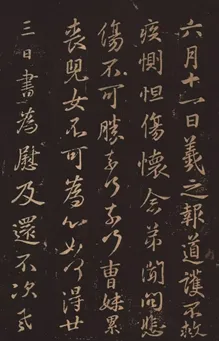 六月十六日羲之報道護不救
疾惻怛傷懷念弟聞問悲
傷不可勝奈何奈何曹妹累
喪兒女不可為心如何得廿
三日書為慰及還不次